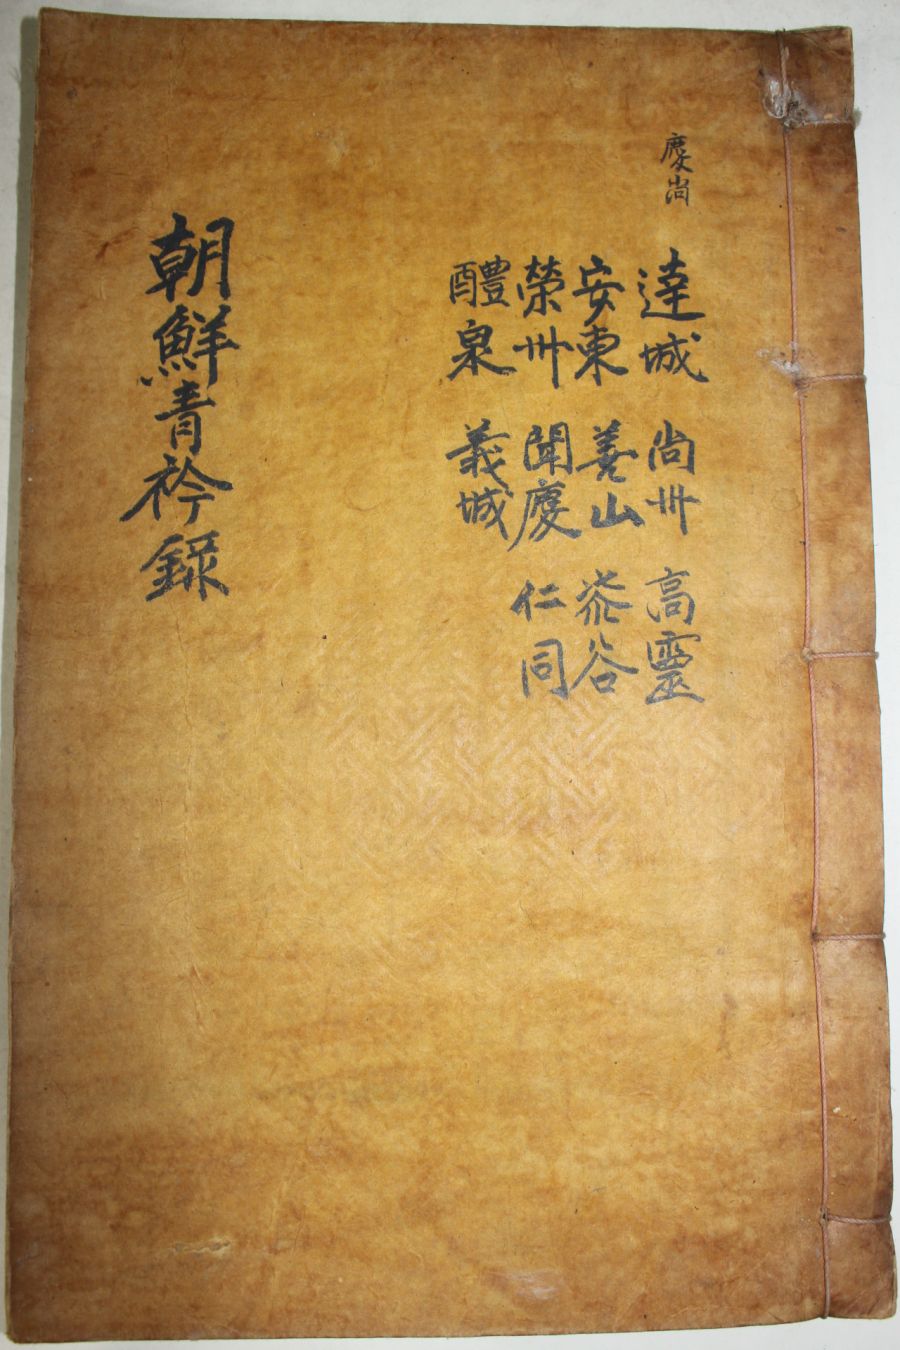 慶尚
達城 尚州 高靈
安東 善山 柒谷
榮州 聞慶 仁同
醴泉 義城
朝鮮青衿錄